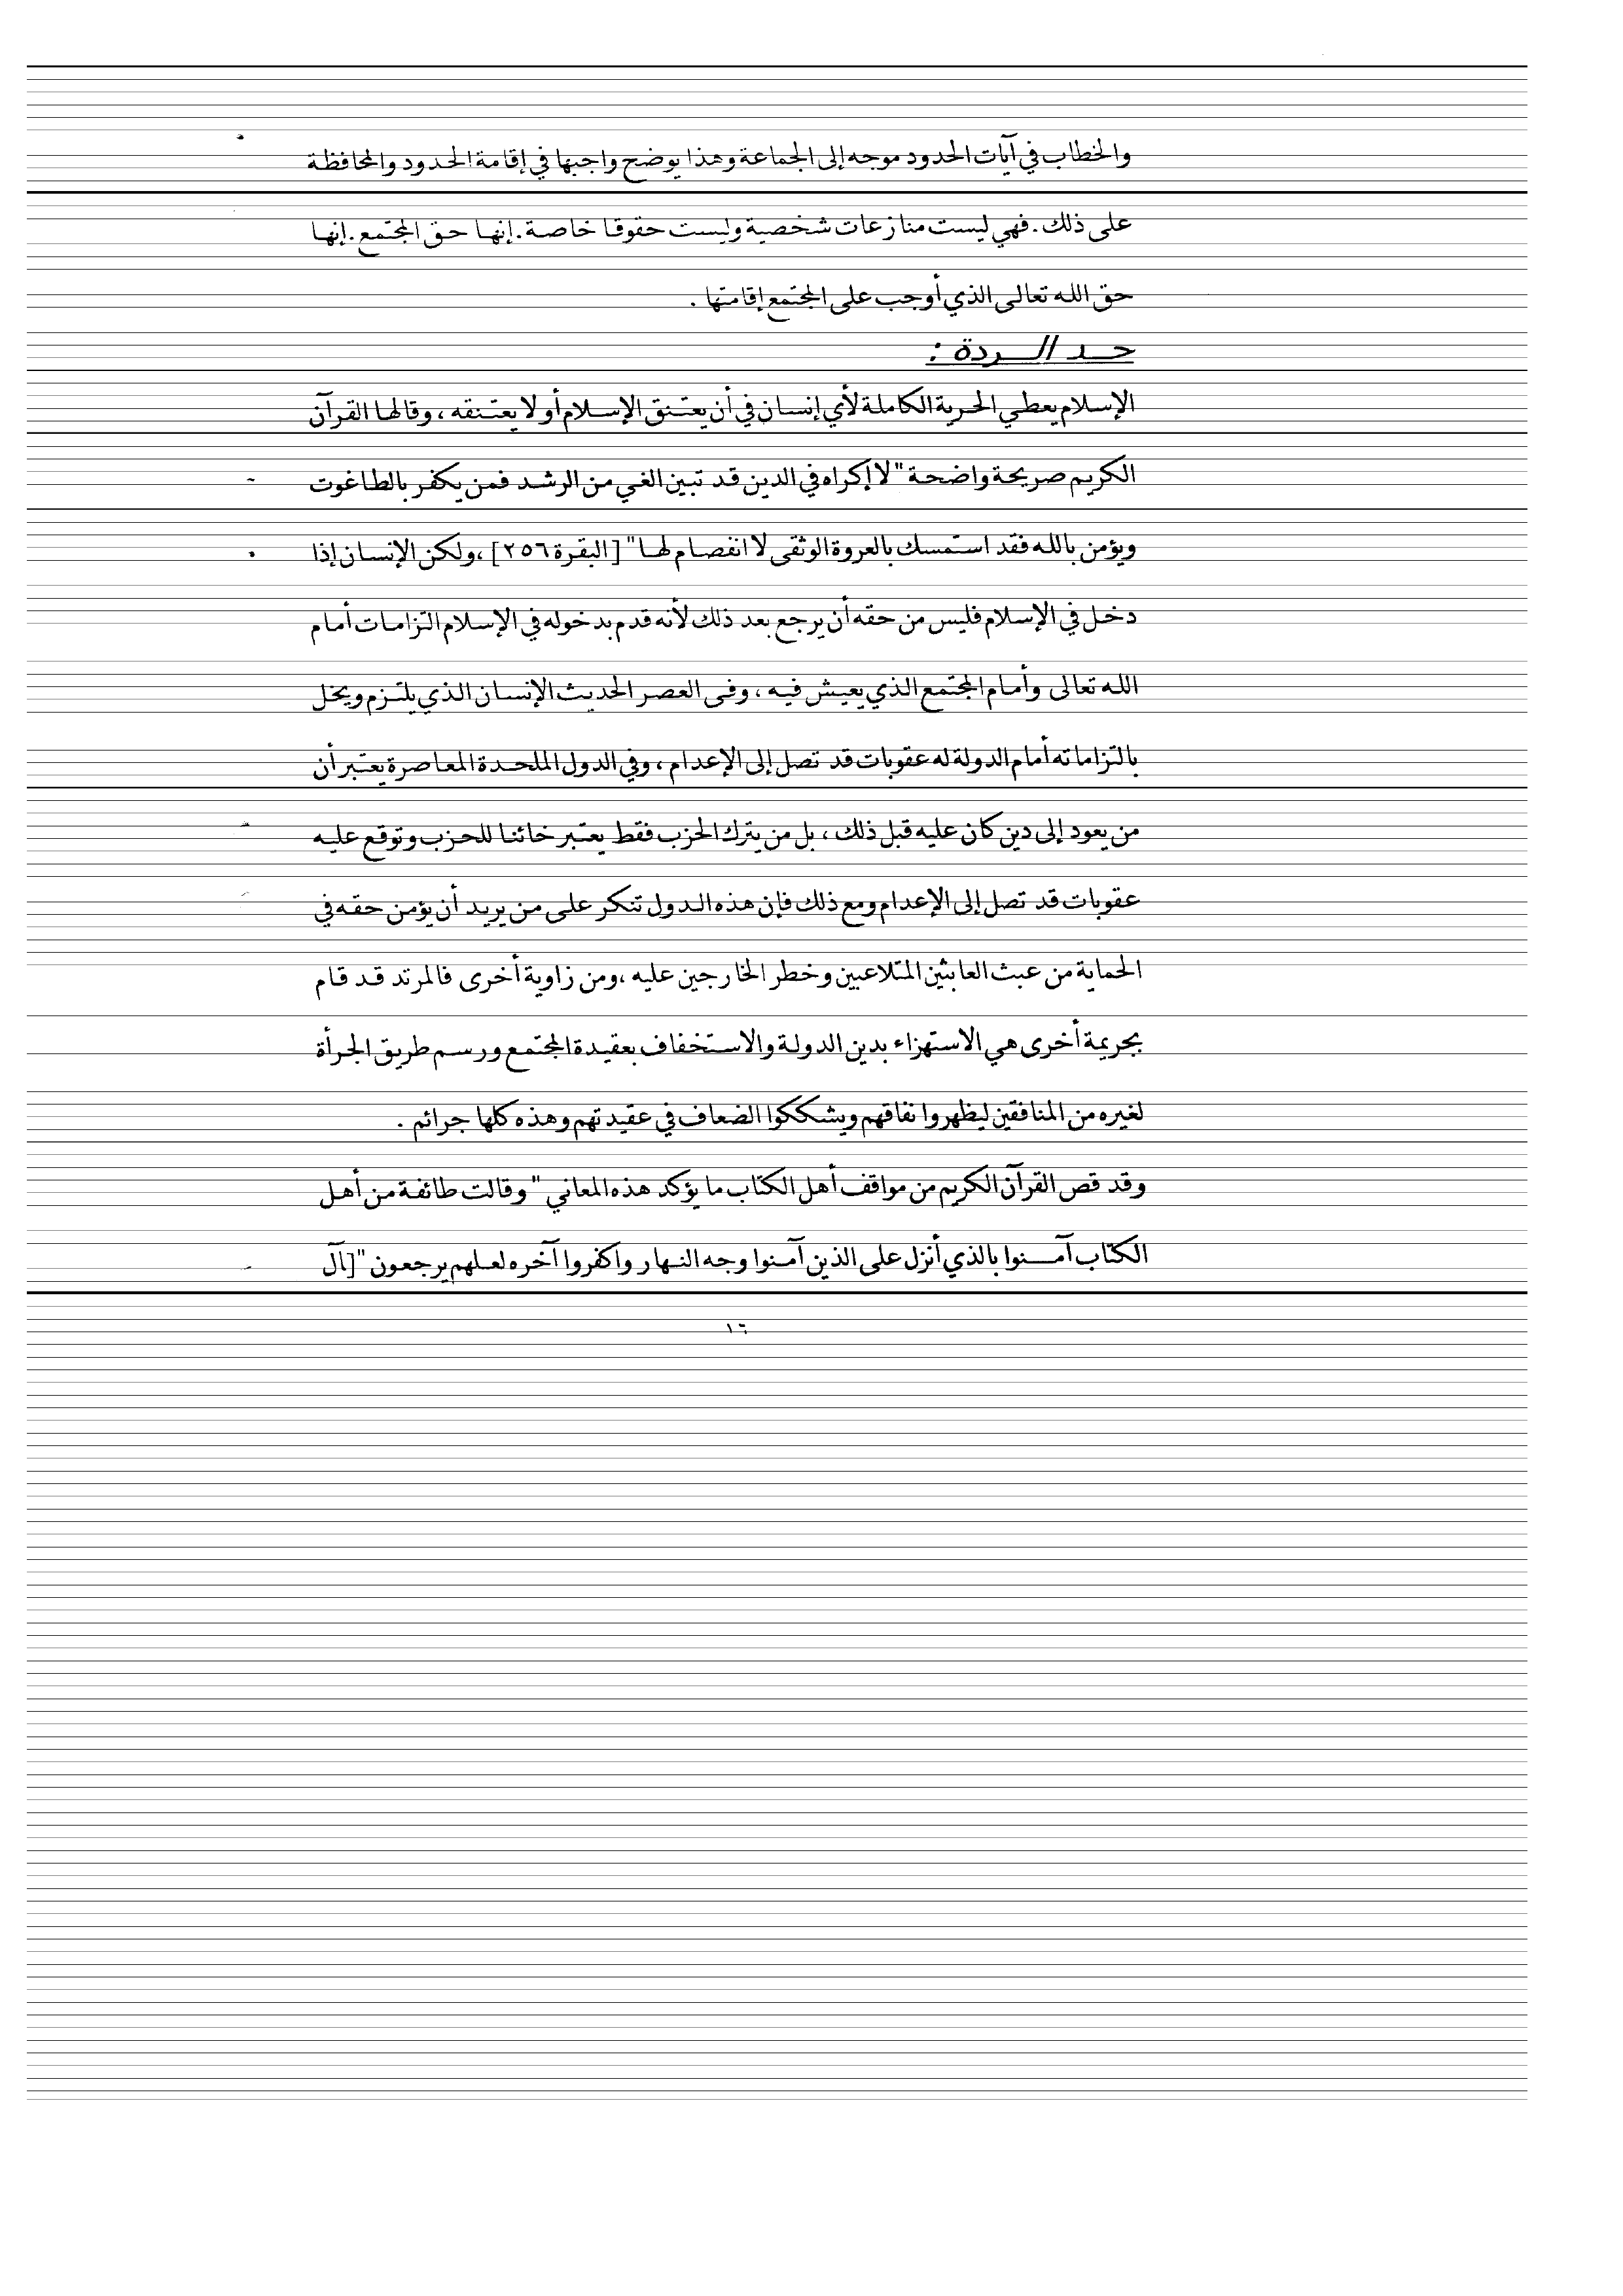 والخطاب في آيات الحدود موجه إلى الجماعة وهذا يوضح واجبها في إقامة الحدود والمحافظة
على ذلك . فهي ليست منازعات شخصية وليست حقوقا خاصة . إنها حق المجتمع . إنها
حق الله تعالى الذي أوجب على المجتمع إقامتها .
حد الردة :
الإسلام يعطي الحرية الكاملة لأي إنسان في أن يعتنق الإسلام أو لا يعتنقه ، وقالها القرآن
الكريم صريحة واضحة " لا إكراه في الدين قد تبين الغي من الرشد فمن يكفر بالطاغوت
ويؤمن بالله فقد استمسك بالعروة الوثقى لا انفصام لها " [ البقرة ٢٥٦ ] ،ولكن الإنسان إذا
دخل في الإسلام فليس من حقه أن يرجع بعد ذلك لأنه قدم بدخوله في الإسلام التزامات أمام
الله تعالى وأمام المجتمع الذي يعيش فيه ، وفى العصر الحديث الإنسان الذي يلتزم ويخل
بالتزاماته أمام الدولة له عقوبات قد تصل إلى الإعدام ، وفي الدول الملحدة المعاصرة يعتبر أن
من يعود إلى دين كان عليه قبل ذلك ، بل من يترك الحزب فقط يعتبر خائنا للحزب وتوقع عليه
عقوبات قد تصل إلى الإعدام ومع ذلك فإن هذه الدول تنكر على من يريد أن يؤمن حقه في
الحماية من عبث العابثين المتلاعبين وخطر الخارجين عليه ،ومن زاوية أخرى فالمرتد قد قام
بجريمة أخرى هي الاستهزاء بدين الدولة والاستخفاف بعقيدة المجتمع ورسم طريق الجرأة
لغيره من المنافقين ليظهروا نفاقهم ويشككوا الضعاف في عقيدتهم وهذه كلها جرائم .
وقد قص القرآن الكريم من مواقف أهل الكتاب ما يؤكد هذه المعاني " وقالت طائفة من أهل
الكتاب آمنوا بالذي أنزل على الذين آمنوا وجه النهار واكفروا آخره لعلهم يرجعون "[آل
١٦